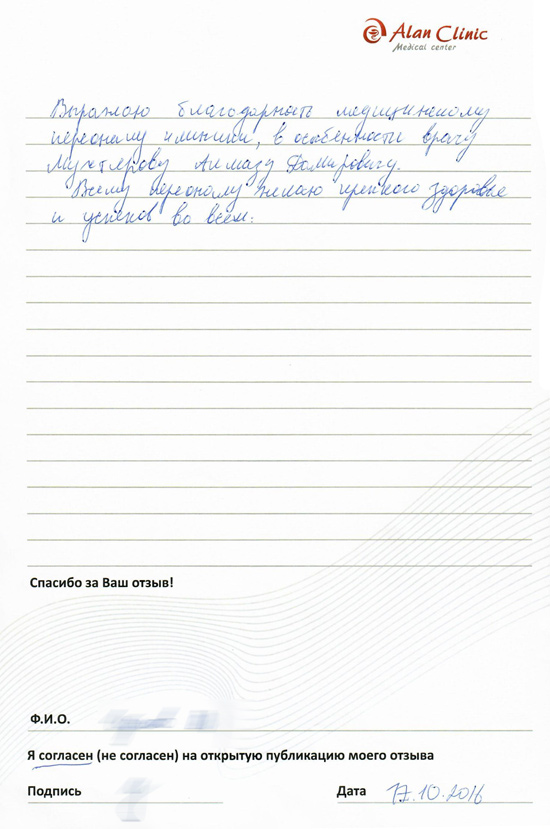 Alan Clinic
Medical center
Выражаю благодарность медицинскому
персоналу клиники, в особенности врачу
Мухтярову Алмазу Дамировичу.
Всему персоналу желаю крепкого здоровье
и успехов во всём.
Спасибо за Ваш отзыв!
Ф.И.О.
Я согласен (не согласен) на открытую публикацию моего отзыва
Подпись
Дата 17.10.2016